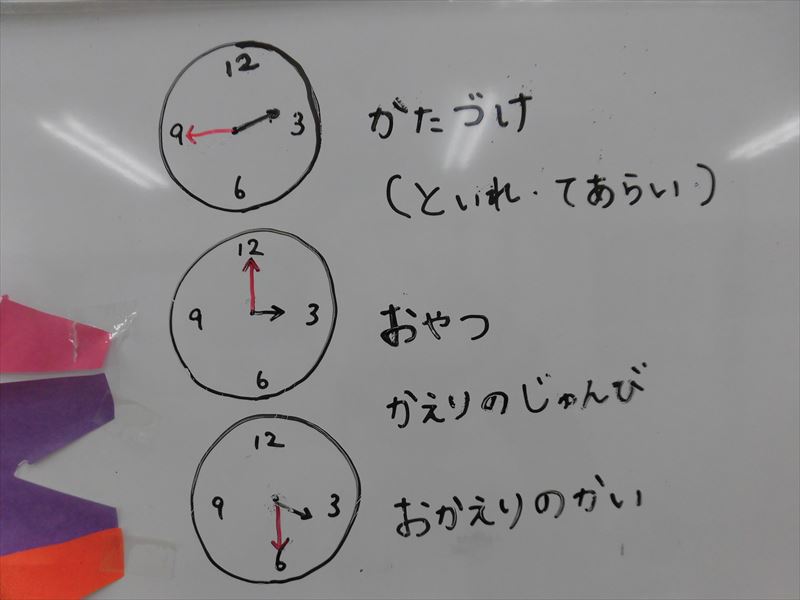 12
9 3
6
がたづけ
(といれ・てあらい)
12
9 3
6
おやつ
かえりのじゅんび
12
9 3
6
おかえりのかい